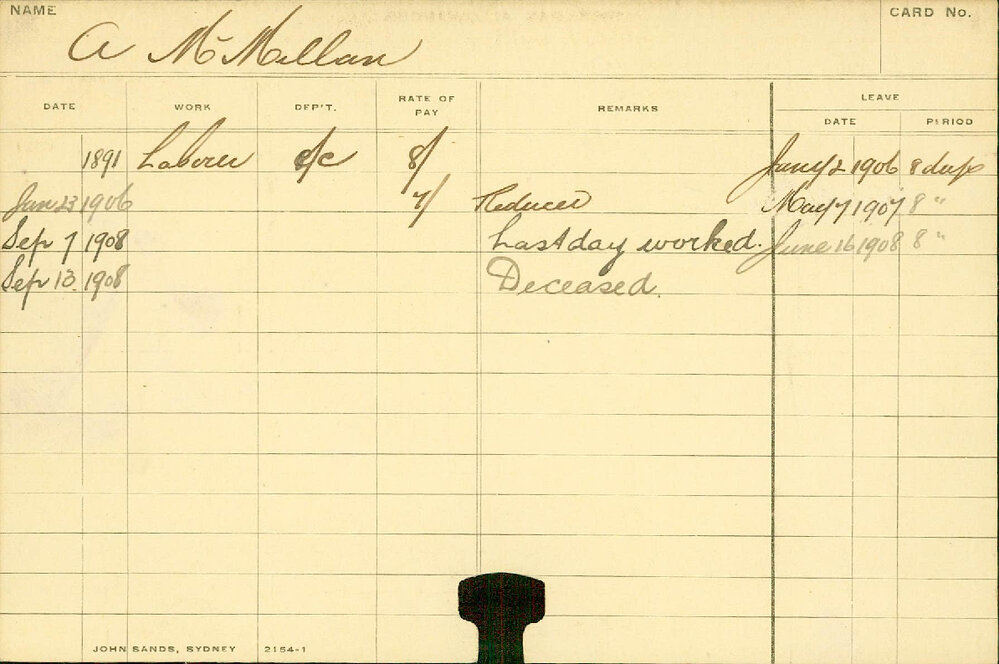 NAME
CARD No.
A McMillan
DATE WORK DEP'T. RATE OF PAY REMARKS LEAVE
DATE PERIOD
1891 Laborer 8/ Jany 2 1906 8 days
Jan 23 1906 7/ Reduced May 7 1907 8 "
Sep 7 1908 Last day worked. June 16 1908 8 "
Sep 13. 1908 Deceased.
JOHN SANDS, SYDNEY 2154-1